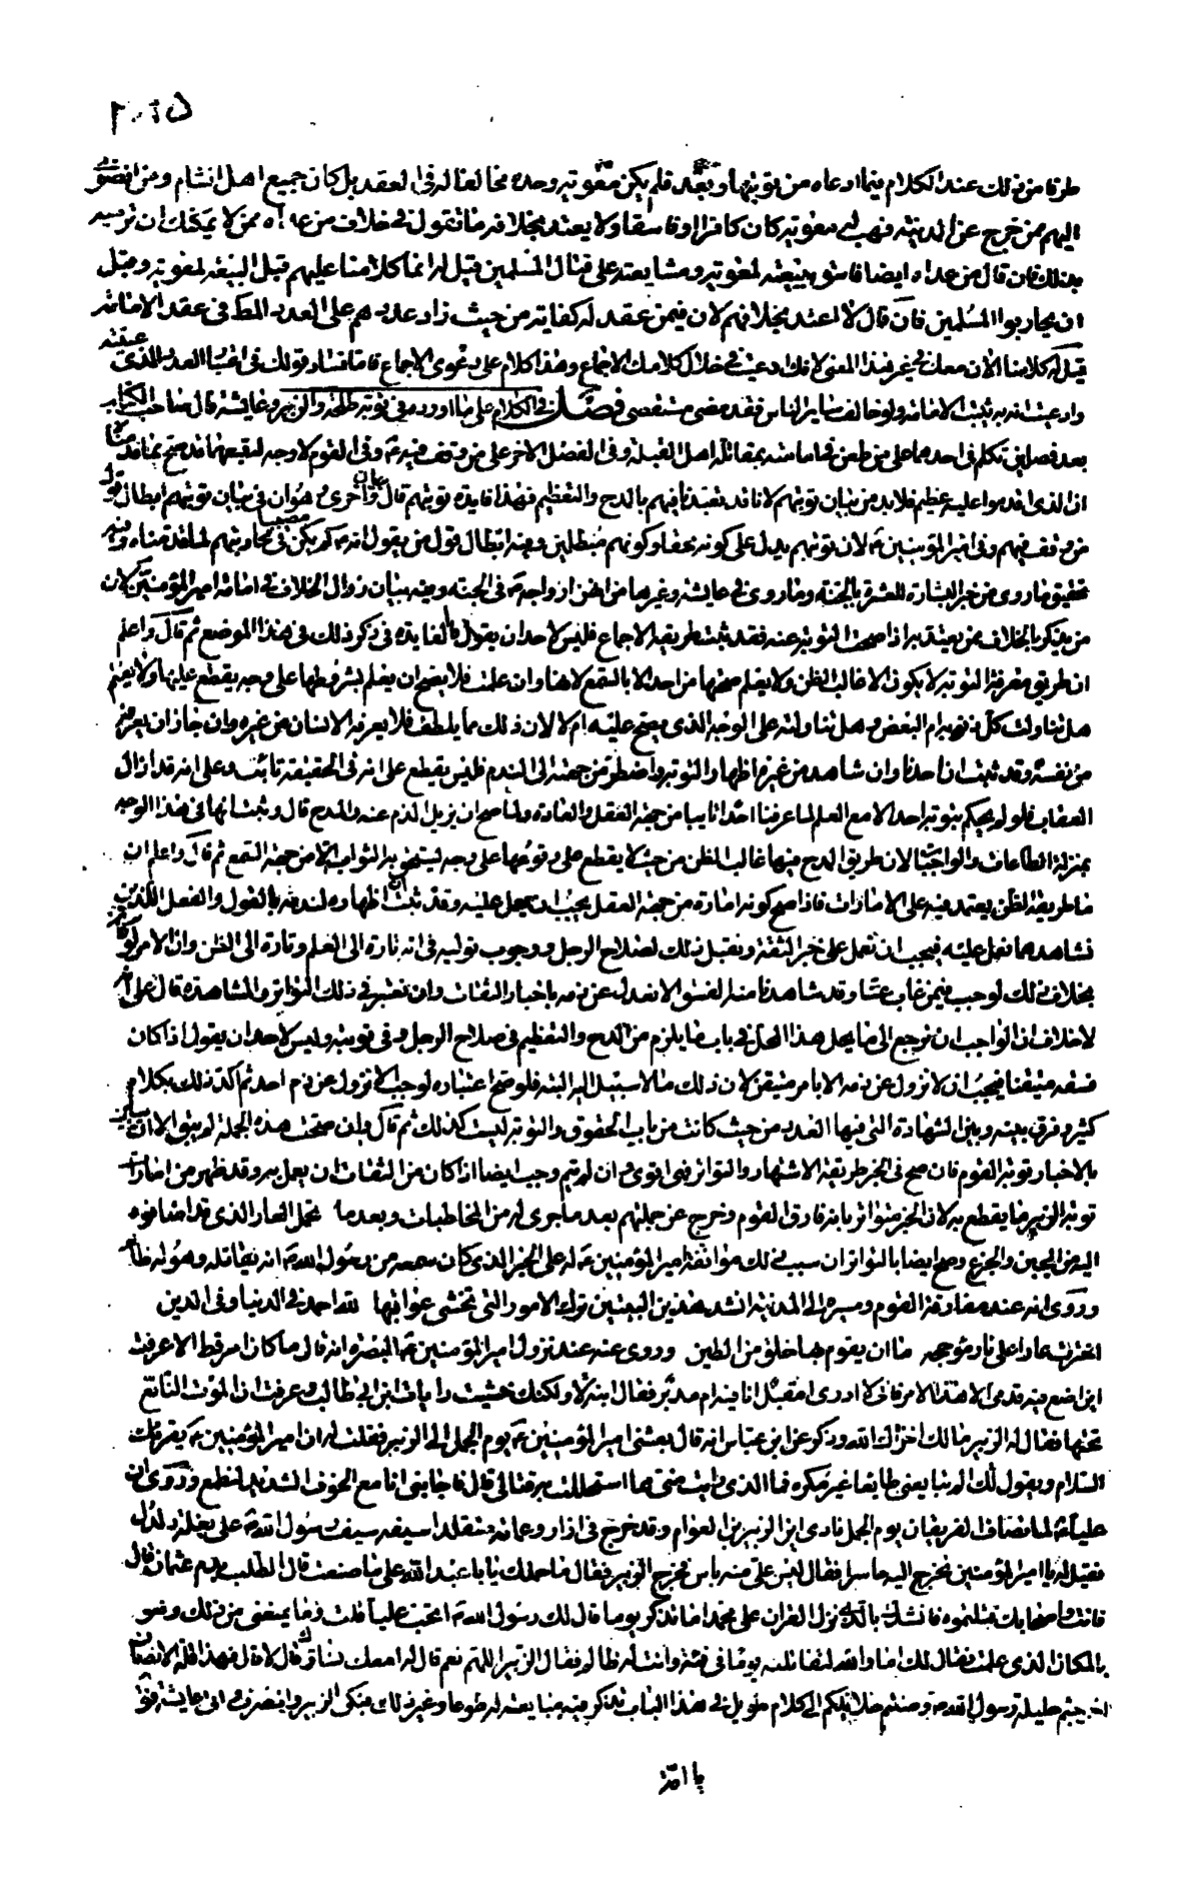 طرفا من ذلك عند الكلام فيما ادعاه من توبتهما وبعد فلم يكن معوية وحده مخالفا له في العقد بل كان جميع اهل الشام ومن انضوى
اليهم ممن خرج عن المدينة فهب ان معوية كان كافرا او فاسقا ولا يعتد بخلافه ما تقول في خلاف من عداه ممن لا يمكنك ان ترميه
بذلك فان قال من عداه ايضا فاسق ببيعته لمعوية ومشايعته على قتال المسلمين قيل له انما كلامنا عليهم قبل البيعة لمعوية وقبل
ان يحاربوا المسلمين فان قال لا اعتد بخلافهم لان فيمن عقد له كفاية من حيث زاد عددهم على العدد المط في عقد الامامة
قيل له كلامنا الان معك في غير هذا المعنى لانك ادعيت في خلال كلامك الاجماع وهذا كلام على دعوى الاجماع فاما فساد قولك في اعتبار العدد الذي عينته
وادعيت انه به تثبت الامامة ولو خالف ساير الناس فقد مضى مستقصى فصل في الكلام على ما اورده في توبة طلحة والزبير وعايشة قال صاحب الكتاب
بعد فصلين تكلم في احدهما على من طعن في امامته بمقاتلة اهل القبلة وفي الفصل الاخر على من وقف فيه ع وفي القوم لا وجه لتتبعهما قد صح بما قدمناه
ان الذي اقدموا عليه عظيم فلا بد من بيان توبتهم لانا قد تعبدنا فيهم بالمدح والتعظيم فهذا فايدة توبتهم قال وان اخرى وهو ان في بيان توبتهم ابطال قول
من وقف فيهم وفي امير المؤمنين ع لان توبتهم يدل على كونه محقا وكونهم مبطلين وفيه ابطال قول من يقول انه ع لم يكن مصيبا في محاربتهم لما قدمناه وفيه
تحقيق ما روى من خبر البشارة للعشرة بالجنة وما روى في عايشة وغيرها من انهن ازواجه ع في الجنة وفيه بيان زوال الخلاف في امامة امير المؤمنين ع لان
من يذكر بالخلاف ممن يعتد به اذا صحت التوبة عنه فقد ثبت طريقة الاجماع فليس لاحد ان يقول ما الفايدة في ذكر ذلك في هذا الموضع ثم قال واعلم
ان طريق معرفة التوبة لا يكون الا غالب الظن ولا يعلم صحتها من احد الا بالسمع لانها وان علمت فلا يصح ان يعلم بشروطها على وجه يقطع عليها ولا يعلم
هل تناولت كل ذنوبه ام البعض وهل تناولته على الوجه الذي يصح عليه ام لا لان ذلك مما يلطف فلا يعرفه الانسان من غيره وان جاز ان يعرفه
من نفسه وقد ثبت ان احدنا وان شاهد من غيره اظهار التوبة واضطر من جهته الى الندم فليس يقطع على انه في الحقيقة تائب وعلى انه قد ازال
العقاب فلو لم يحكم بتوبة احد الا مع العلم لما عرفنا احدا تايبا من جهة العقل والعادة ولما صح ان يزيل الذم عنه والمدح قال وثبت انها في هذا الوجه
بمنزلة الطاعات والواجبات لان طريق المدح فيها غالب الظن من حيث لا يقطع على وقوعها على وجه يستحق به الثواب الا من جهة السمع ثم قال واعلم ان
ما طريقه الظن يعتمد فيه على الامارات فاذا صح كونه امارة من جهة العقل يجب ان يعمل عليه وقد ثبت ان اظهاره لندمه بالقول والفعل اللذين
نشاهدهما نعمل عليه فيجب ان نعمل على خبر الثقة ونقبل ذلك لصلاح الرجل ووجوب توليه في انه تارة الى العلم وتارة الى الظن وان الامر لو كان
بخلاف ذلك لوجب فيمن غاب عنا وقد شاهدنا منه الفسق الا نعدل عن ذمه باخبار الثقات وان نعتبر في ذلك التواتر والمشاهدة قال على انه
لا خلاف ان الواجب ان نرجع الى ما يحل هذا المحل في باب ما يلزم من المدح والتعظيم في صلاح الرجل وفي توبته وليس لاحد ان يقول اذا كان
فسقه متيقنا فيجب ان لا نزول عن ذمه الا بامر متيقن لان ذلك مما لا سبيل اليه البتة فلو صح اعتباره لوجب الا نزول عن ذم احد ثم اكد ذلك بكلام
كثير وفرق بينه وبين الشهادة التي فيها العدد من حيث كانت من باب الحقوق والتوبة ليست كذلك ثم قال وان صحت هذه الجملة لم يبق الا ان نبين
بالاخبار توبة القوم فان صح في الخبر طريقة الاشتهار والتواتر فهي اقوى وان لم يتم وجب ايضا اذا كان من الثقات ان يعمل به وقد ظهر من امارات
توبة الزبير ما يقطع به لان الخبر متواتر بانه فارق القوم وخرج عن جملتهم بعد ما جرى له من المخاطبات وبعدما تحمل العار الذي قد اضافوه
اليه من الجبن والجزع وصح ايضا بالتواتر ان سبب ذلك مواقفة امير المؤمنين ع له على الخبر الذي كان سمعه من رسول الله ص انه يقاتله وهو له ظالم
وروى انه عند مفارقة القوم ومسيره الى المدينة انشد هذين البيتين ترك الامور التي تخشى عواقبها لله احمد في الدنيا وفي الدين
اخترت عارا على نار مؤججة ما ان يقوم لها خلق من الطين وروى عنه عند نزول امير المؤمنين ع البصرة انه قال ما كان امر قط الا عرفت
اين اضع فيه قدمي الا هذا الامر فاني لا ادري امقبل انا فيه ام مدبر فقال ابنه لا ولكنك خشيت رايات ابن ابي طالب وعرفت ان الموت الناقع
تحتها فقال له الزبير ما لك اخزاك الله وذكر عن ابن عباس انه قال بعثني امير المؤمنين ع يوم الجمل الى الزبير فقلت له ان امير المؤمنين ع يقرئك
السلام ويقول لك الم تبايعني طايعا غير مكره فما الذي رايت مني مما استحللت به قتالي قال فاجابني انا مع الخوف الشديد لنطمع وروى ان
عليا ع لما تصاف الفريقان يوم الجمل نادى اين الزبير بن العوام وقد خرج في ازار وعمامة متقلدا سيف رسول الله ص على بغلته دلدل
فقيل له يا امير المؤمنين تخرج اليه حاسرا فقال ليس علي منه باس فخرج الزبير فقال ما حملك يا با عبد الله على ما صنعت قال الطلب بدم عثمان قال
فانت واصحابك قتلتموه فانشدك بالذي نزل القران على محمد اما تذكر يوما قال لك رسول الله ص اتحب عليا قلت وما يمنعني من ذلك وهو
بالمكان الذي علمت فقال لك اما والله لتقاتلنه يوما في فئة وانت له ظالم فقال الزبير اللهم نعم قال له امعك نساؤك قال لا قال فهذا قلة الانصاف
اخرجتم حليلة رسول الله ص وصنتم حلايلكم الى كلام طويل في هذا الباب تذكر فيه مبايعته له طوعا وغير ذلك فبكى الزبير وانصرف الى عايشة فقال
يا امة